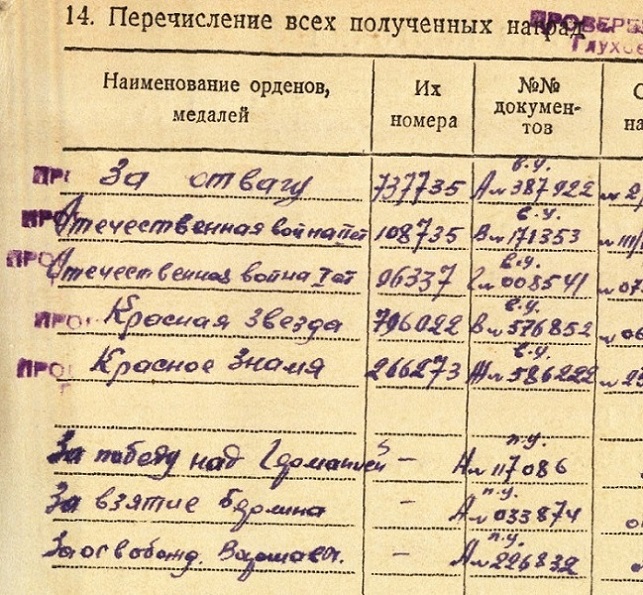 14. Перечисление всех полученных наград
Наименование орденов, медалей
Их номера
№№ документов
За отвагу 737735 в.у. А № 387922
Отечественная война II ст 108735 в.у. В № 171353
Отечественная война I ст 96337 в.у. Г № 008541
Красная Звезда 796022 в.у. В № 576852
Красное Знамя 266273 в.у. Ж № 586222
За победу над Германией – п.у. А № 117086
За взятие Берлина – п.у. А № 033874
За освобожд. Варшавы. – п.у. А № 226832